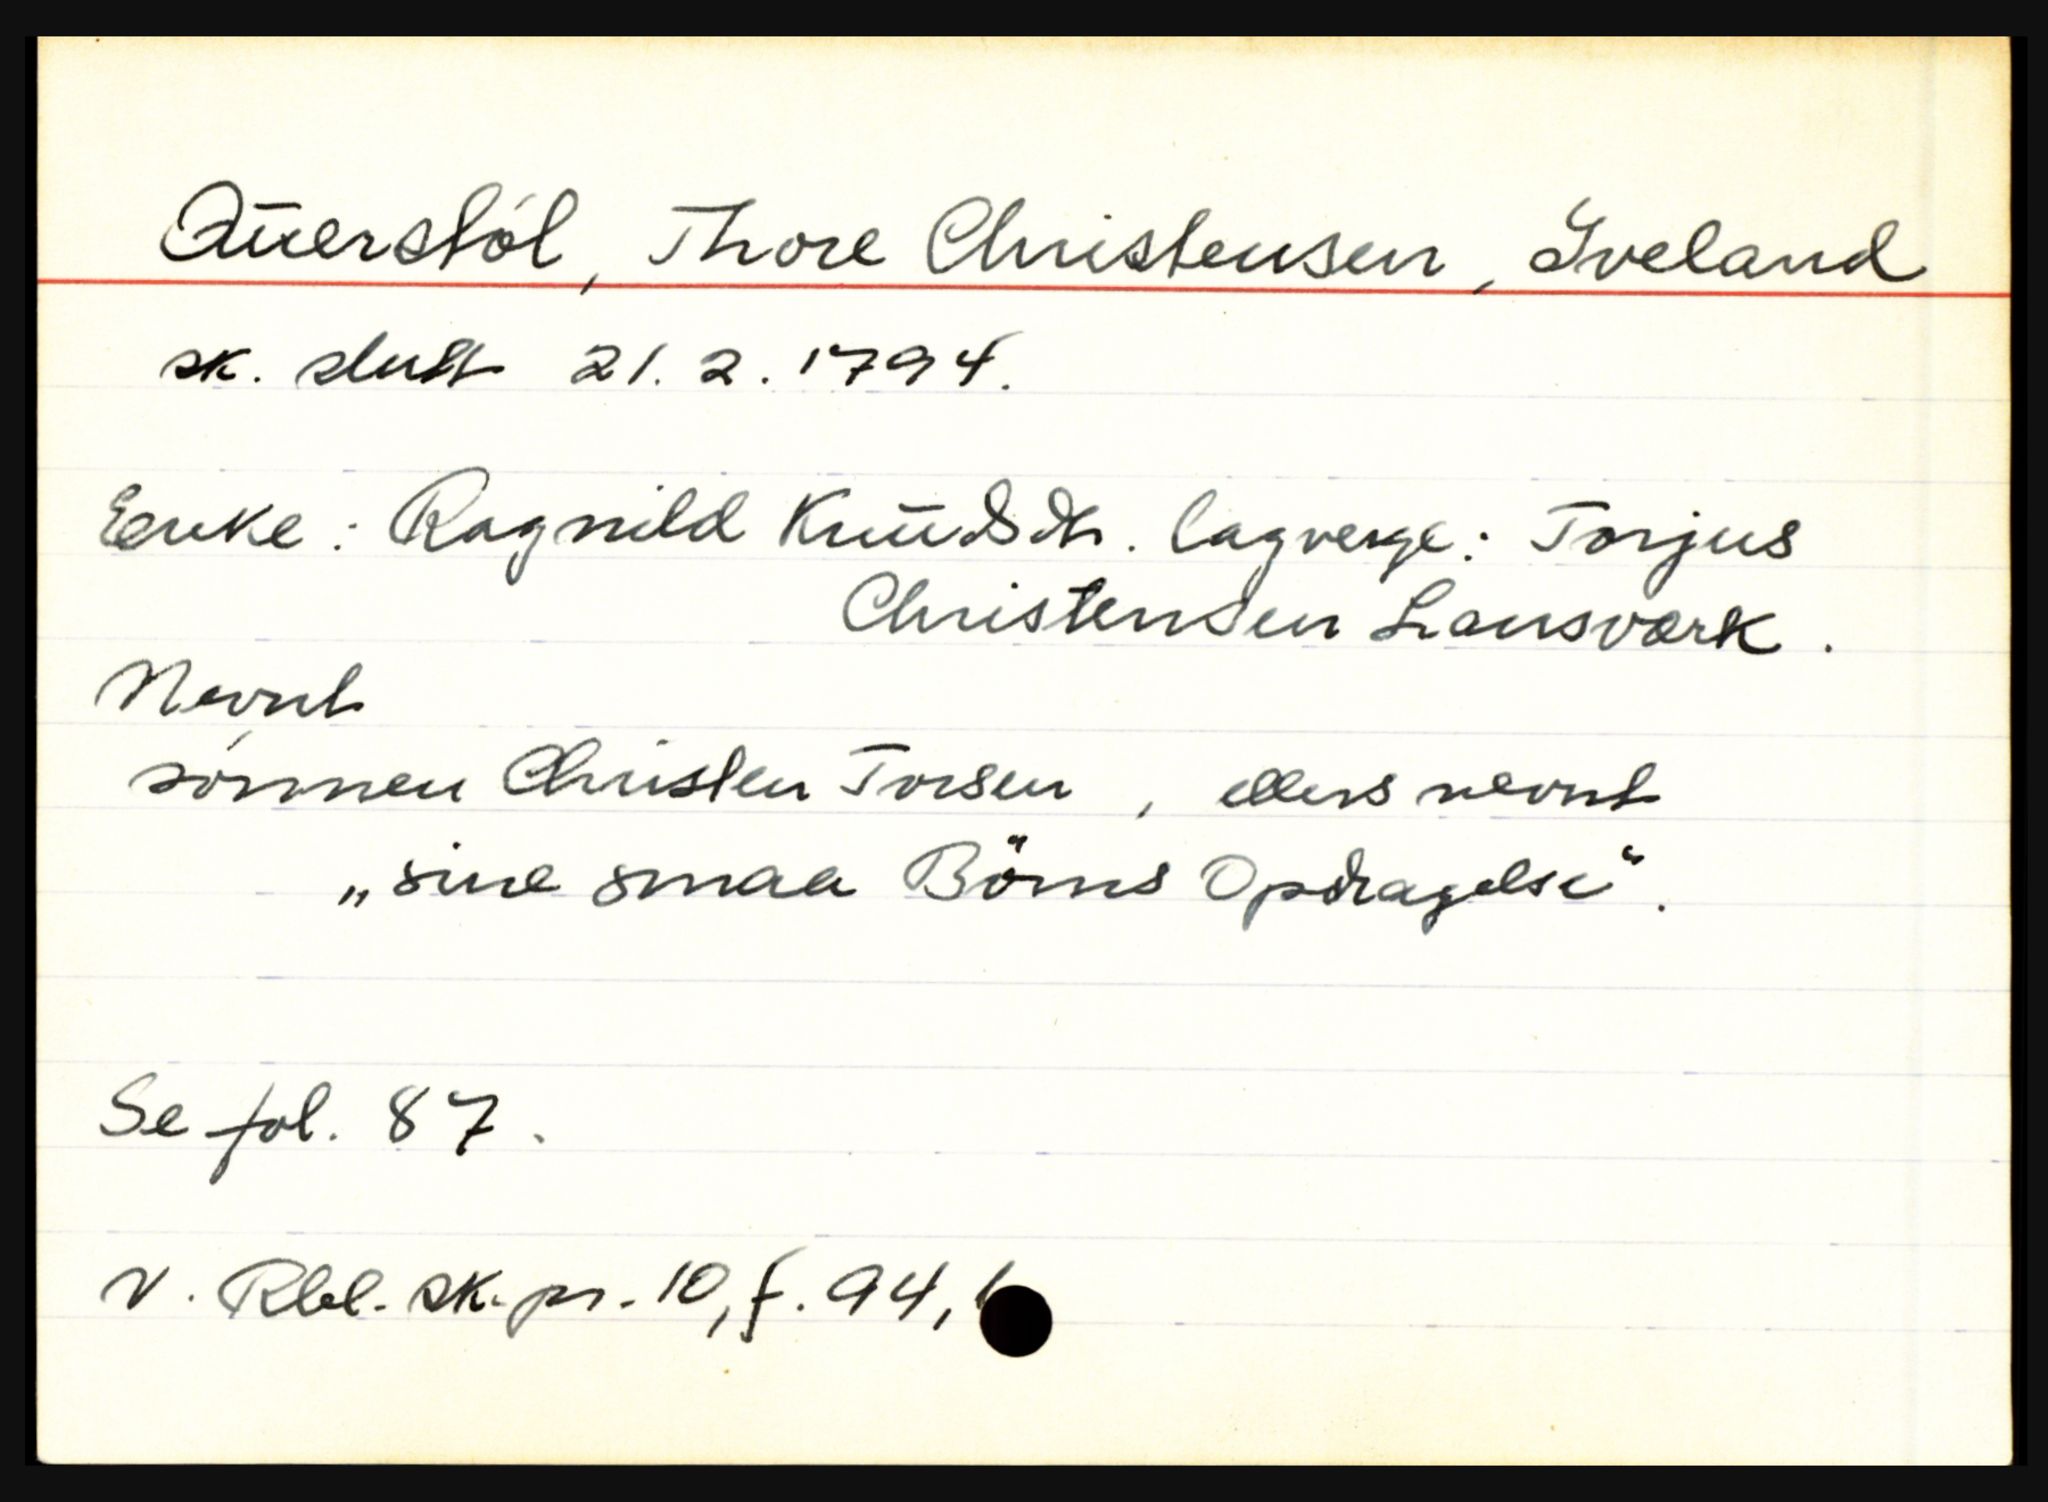 Aüerstøl, Thore Christensen, Iveland
sk. slutt 21. 2. 1794.
Enke: Ragnild Knüdsdtr. lagverge: Torjus
Christensen Lansværk.
Nevnt
sønnen Christen Torsen, ellers nevnt
„sine smaa Börns Opdragelse“.
Se fol. 87.
V. Rbl. sk. pr. 10, f. 94,